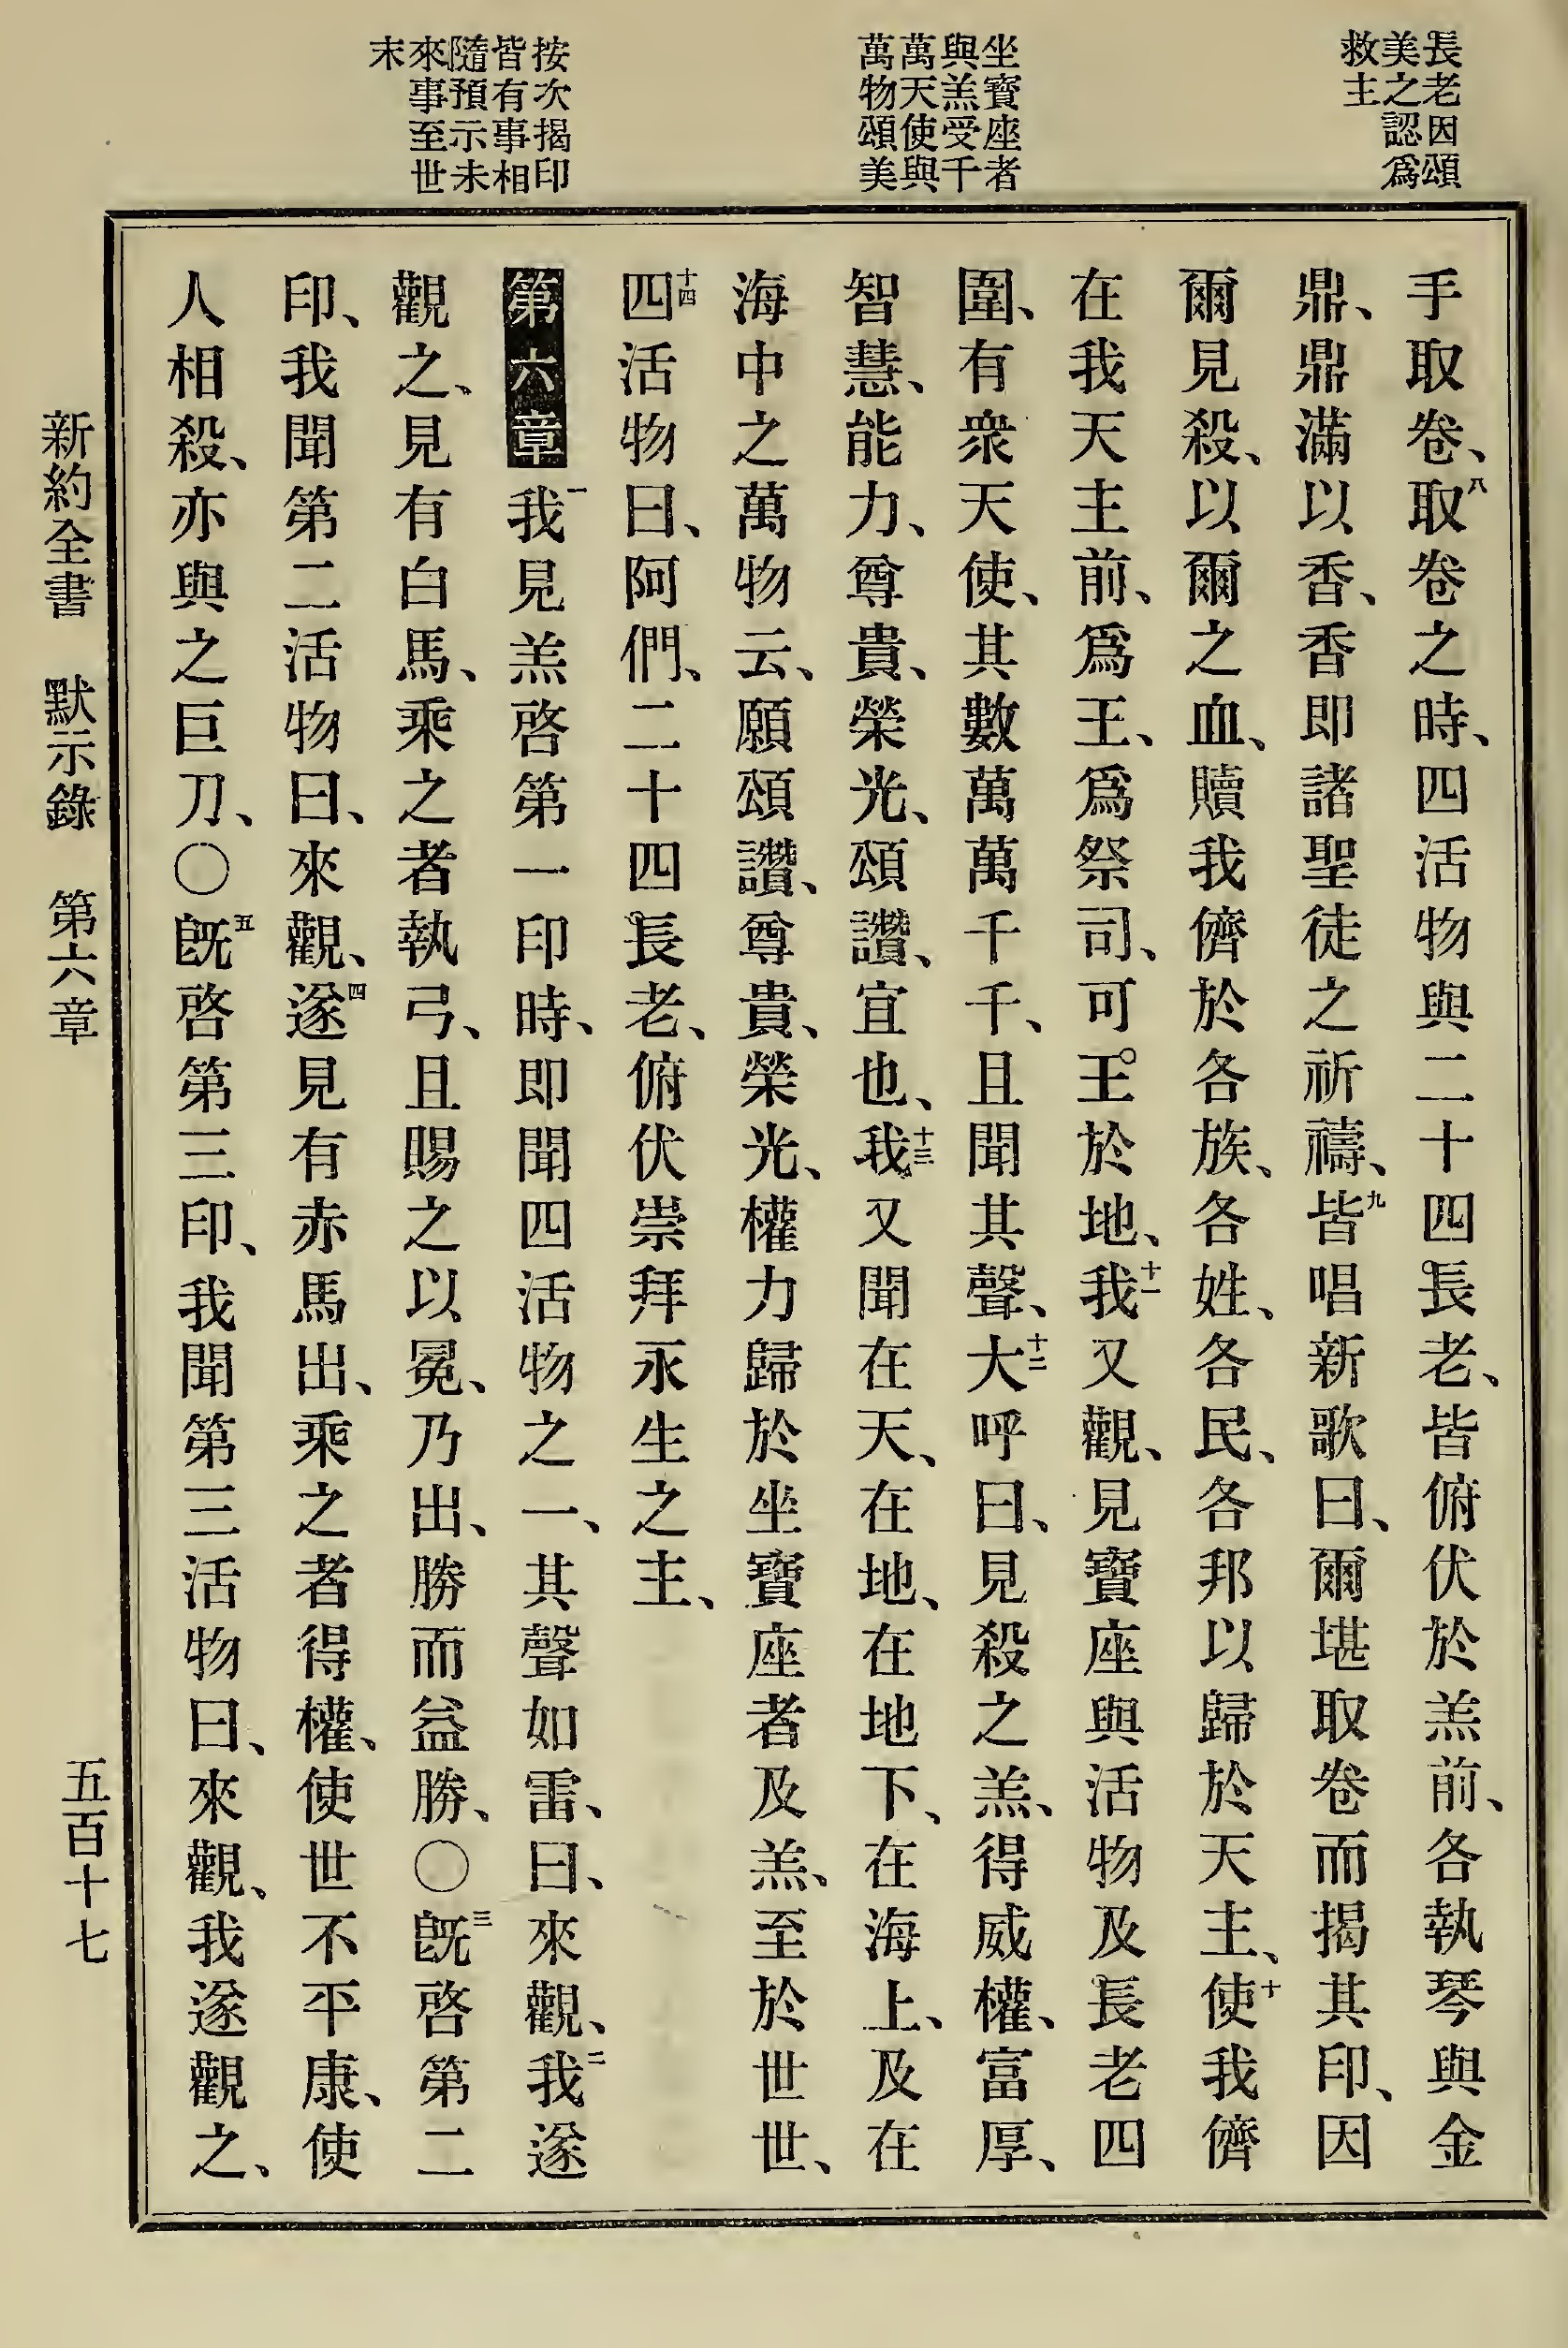 長老因頌
美之認爲
救主
坐寶座者
與羔受千
萬天使與
萬物頌美
按次揭印
皆有事相
隨預示未
來事至世
末
手取卷、八取卷之時、四活物與二十四長老、皆俯伏於羔前、各執琴與金
鼎、鼎滿以香、香即諸聖徒之祈禱、九皆唱新歌曰、爾堪取卷而揭其印、因
爾見殺、以爾之血、贖我儕於各族、各姓、各民、各邦以歸於天主、十使我儕
在我天主前、爲王、爲祭司、可王於地、十一我又觀、見寶座與活物及長老四
圍、有衆天使、其數萬萬千千、且聞其聲、十二大呼曰、見殺之羔、得威權、富厚、
智慧、能力、尊貴、榮光、頌讚、宜也、十三我又聞在天、在地、在地下、在海上、及在
海中之萬物云、願頌讚、尊貴、榮光、權力歸於坐寶座者及羔、至於世世、
十四四活物曰、阿們、二十四長老、俯伏崇拜永生之主、
第六章 一我見羔啓第一印時、即聞四活物之一、其聲如雷、曰、來觀、二我遂
觀之、見有白馬、乘之者執弓、且賜之以冕、乃出、勝而益勝、〇三旣啓第二
印、我聞第二活物曰、來觀、四遂見有赤馬出、乘之者得權、使世不平康、使
人相殺、亦與之巨刀、〇五旣啓第三印、我聞第三活物曰、來觀、我遂觀之、
新約全書 默示錄 第六章 五百十七